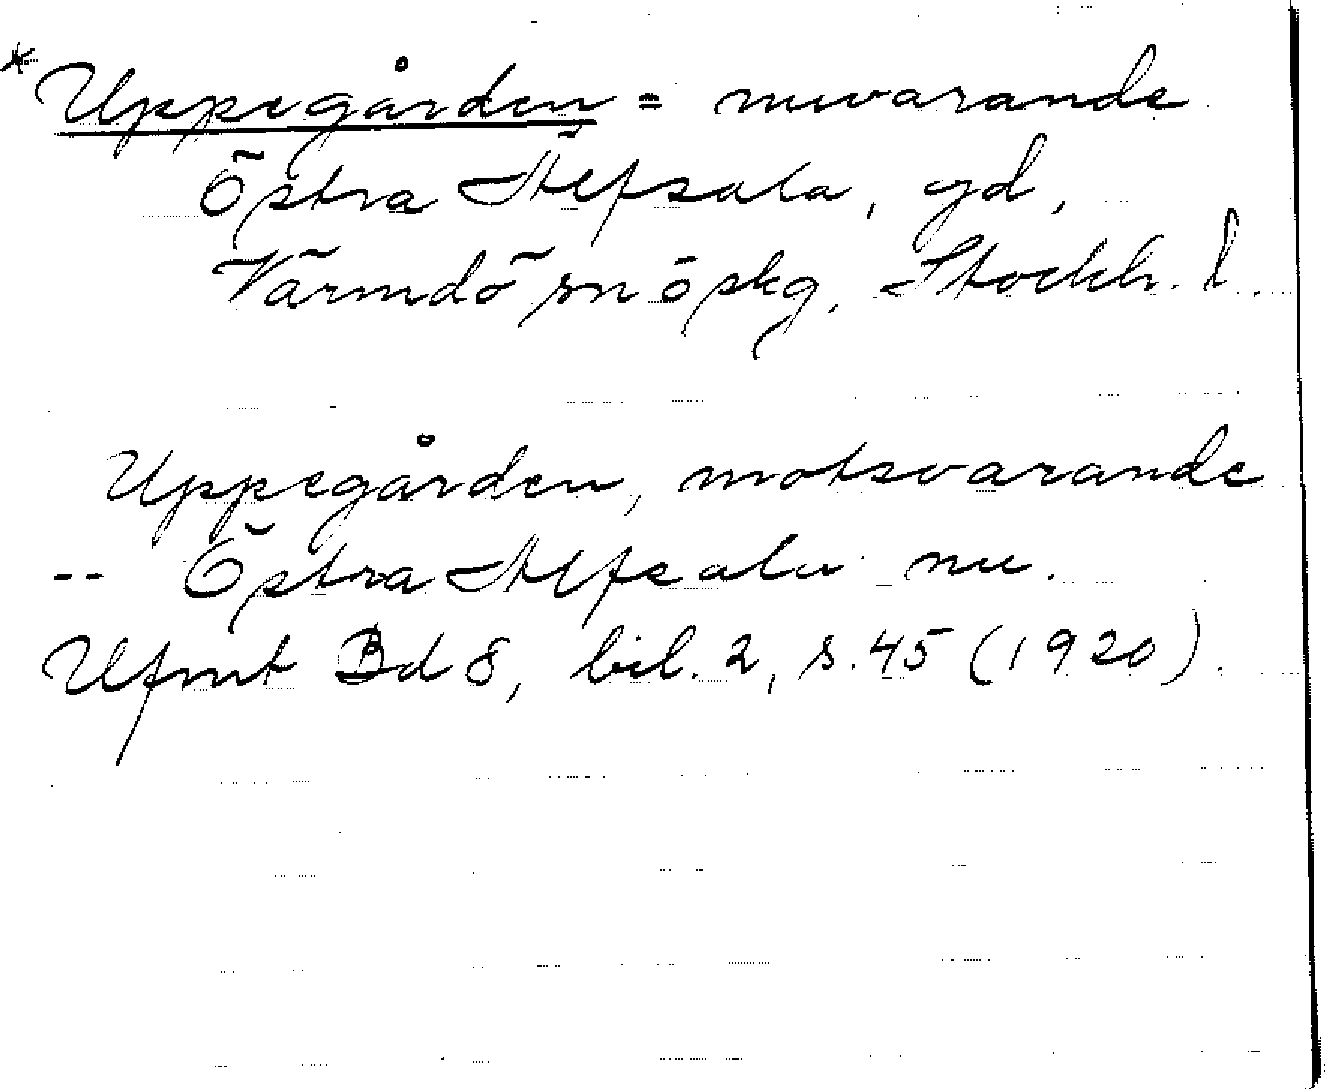 * Uppegården = nuvarande
Östra Stefsala, gd,
Värmdö sn ö skg, Stockh. l.
Uppegården, motsvarande
-- Östra Stefsala nu.
Ufmt Bd 8, bil. 2, s. 45 (1920).